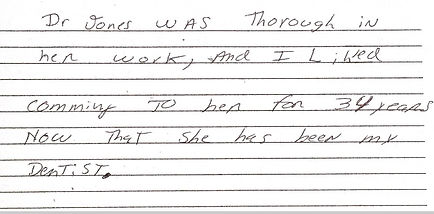 Dr Jones WAS Thorough in
her work, And I Liked
comming TO her for 34 years
Now That she has been my
DenTiST.